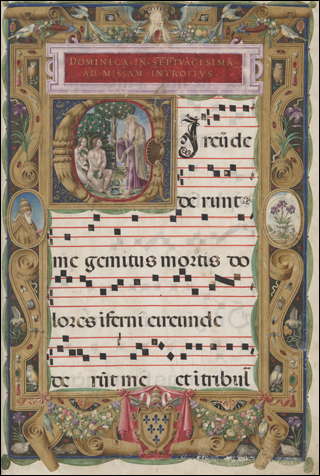 DOMINICA·IN·SEPTVAGESIMA
AD MISSAM INTROITVS
CIrcūde
de runt
me gemitus mortis do
lores iferni circunde
de rūt me et i tribul